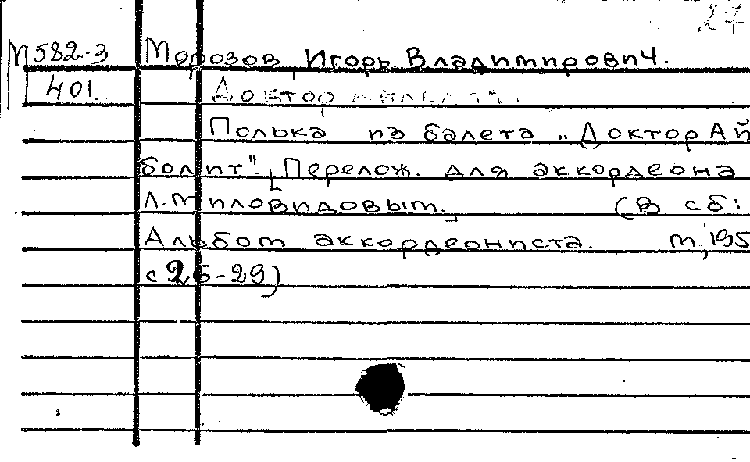 27
М582-3 Морозов, Игорь Владимирович.
401. Доктор
Полька из балета „Доктор Ай
болит". Перелож. для аккордеона
Л. Миловидовым. (В сб:
Альбом аккордеониста. М, 195
с 26-29)